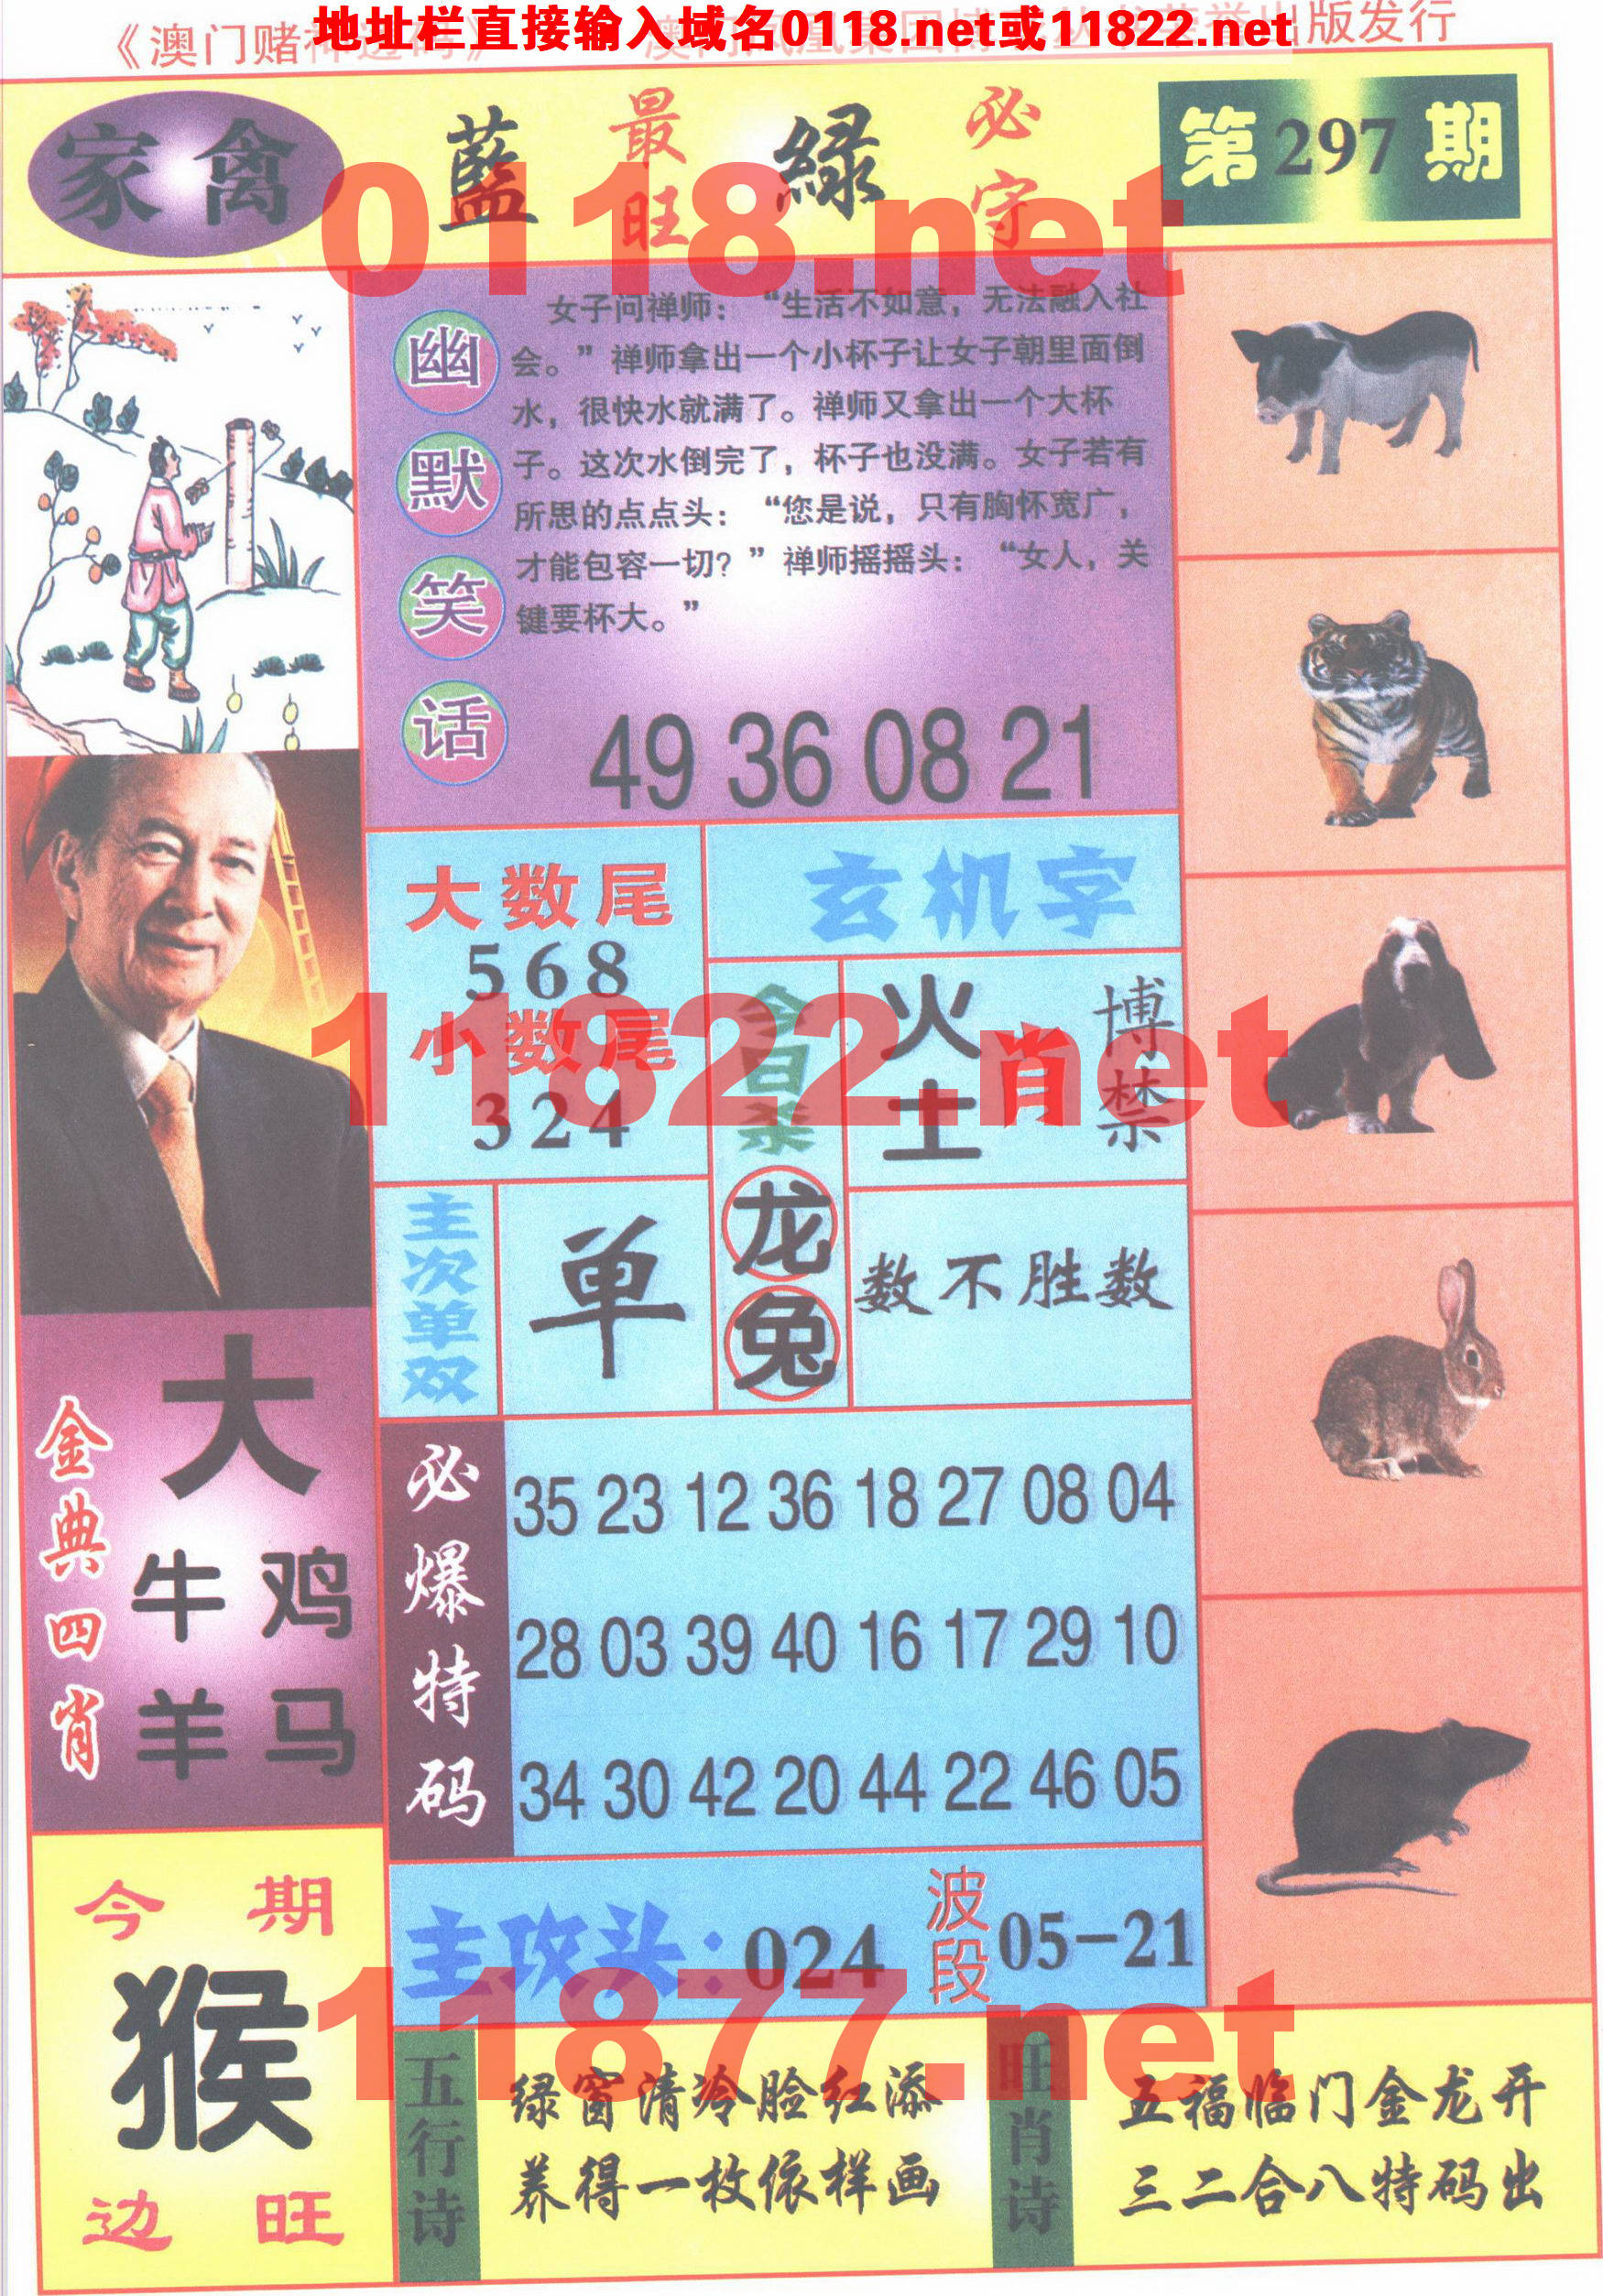 地址栏直接输入域名0118.net或11822.net
《澳门赌
出版发行
家禽
藍
最旺
緑
必守
第297期
0118.net
幽默笑话
女子问禅师：“生活不如意，无法融入社
会。”禅师拿出一个小杯子让女子朝里面倒
水，很快水就满了。禅师又拿出一个大杯
子。这次水倒完了，杯子也没满。女子若有
所思的点点头：“您是说，只有胸怀宽广，
才能包容一切？”禅师摇摇头：“女人，关
键要杯大。”
49 36 08 21
大数尾
568
小数尾
324
玄机字
今日杀
龙兔
火土
肖
博禁
11822.net
主次单双
单
数不胜数
金典四肖
大
牛 鸡
羊 马
必爆特码
35 23 12 36 18 27 08 04
28 03 39 40 16 17 29 10
34 30 42 20 44 22 46 05
主攻头：024
波段
05-21
今期
猴
边旺
11877.net
五行诗
绿窗清冷脸红添
养得一枚依样画
旺肖诗
五福临门金龙开
三二合八特码出